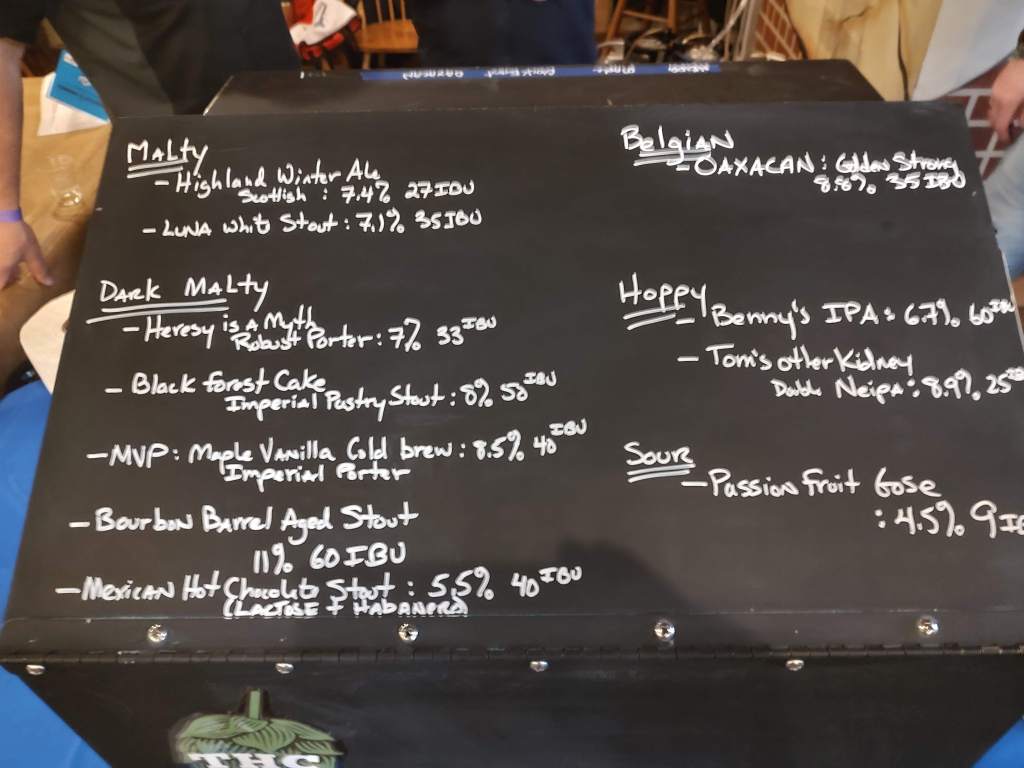 Malty
- Highland Winter Ale
Scottish : 7.4% 27 IBU
- Luna White Stout : 7.1% 35 IBU
Dark Malty
- Heresy is a Myth
Robust Porter : 7% 33 IBU
- Black Forest Cake
Imperial Pastry Stout : 8% 58 IBU
- MVP : Maple Vanilla Cold brew : 8.5% 40 IBU
Imperial Porter
- Bourbon Barrel Aged Stout
11% 60 IBU
- Mexican Hot Chocolate Stout : 5.5% 40 IBU
(Lactose + Habanero)
Belgian
- Oaxacan : Golden Strong
8.8% 35 IBU
Hoppy
- Benny's IPA : 6.7% 60 IBU
- Tom's other Kidney
Double Neipa : 8.9% 25
Sour
- Passion Fruit Gose
: 4.5% 9
THC